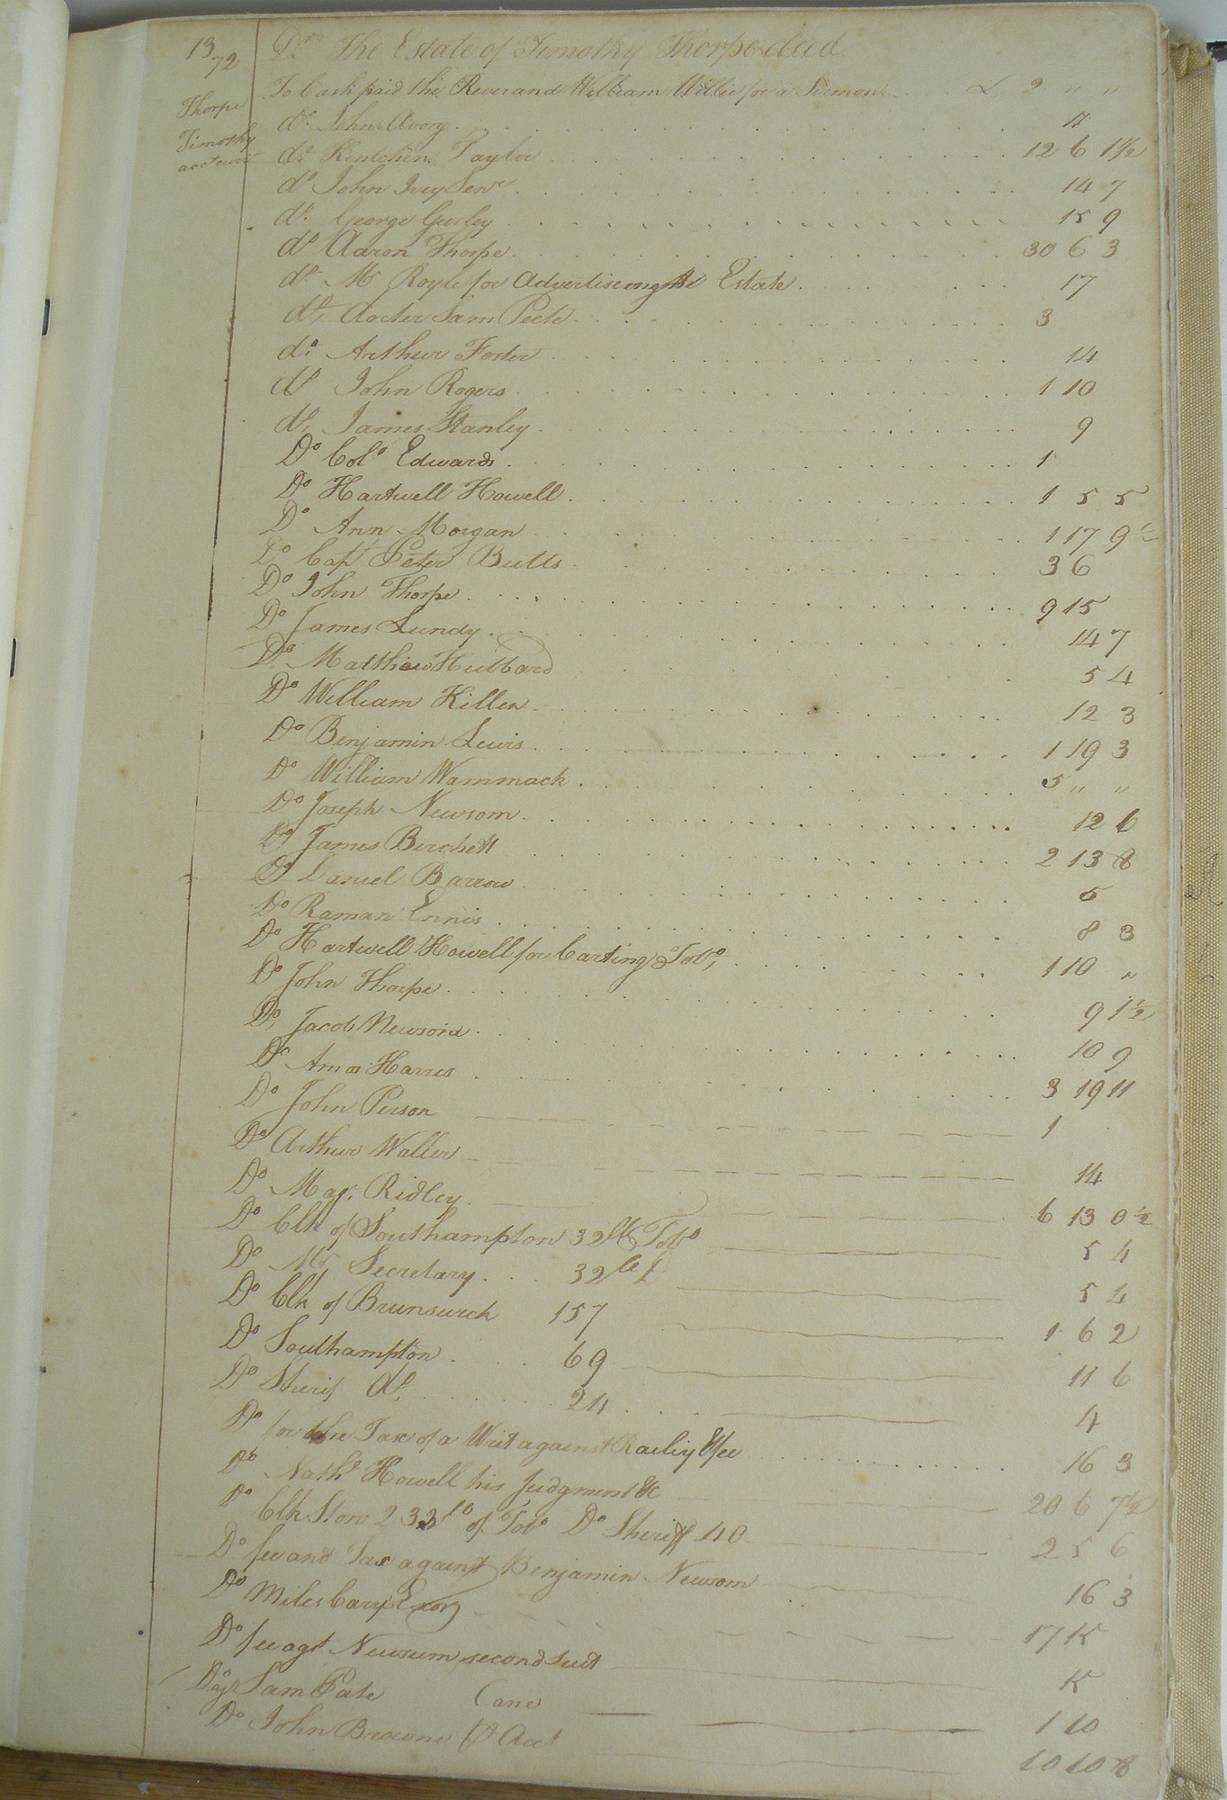 13
72
Dr The Estate of Timothy Thorpe decd
Thorpe
Timothy
account
To Cash paid the Reverand William Willie for a Sermon £ 2 " "
do John Avory 11
do Kintchin Taylor 12 6 1 1/2
do John Ivey Senr 14 7
do George Gurley 15 9
do Aaron Thorpe 30 6 3
do Mr Royle for Advertiseing the Estate 17
do Docter Sam Peete 3
do Arthur Foster 14
do John Rogers 1 10
do James Stanley 9
Do Colo Edwards 1
Do Hartwell Howell 1 5 5
Do Ann Morgan 1 17 9 1/2
Do Capt Peter Butts 3 6
Do John Thorpe 9 15
Do James Lundy 14 7
Do Matthew Hubbard 5 4
Do William Killen 12 3
Do Benjamin Lewis 1 19 3
Do William Wammack 5 " "
Do Joseph Newsom 12 6
Do James Birchett 2 13 8
Do Daniel Barrow 5
Do Raman Ennis 8 3
Do Hartwell Howell for Carting Tobo 1 10 "
Do John Thorpe 9 1 1/2
Do Jacob Newsom 10 9
Do Amos Harris 3 19 11
Do John Person 1
Do Arthur Waller 14
Do Majr Ridley 6 13 0 1/2
Do Clk of Southampton 32 lb Tobo 5 4
Do Mr Secretary 32 lb 5 4
Do Clk of Brunswick 157 1 6 2
Do Southampton 69 11 6
Do Sherif do 24 4
Do for the Tax of a Writ against Railiy 16 3
Do Nathl Howell his Judgment &c 20 6 7 1/2
Do Clk Ston 233 lb of Tobo Do Sheriff 40 2 5 6
Do fee and Tax against Benjamin Newsom 16 3
Do Miles Cary Exors 17 15
Do fee agt Newsum second suit 15
Do Sam Pate 1 10
Do John Browne Acct 10 10 8